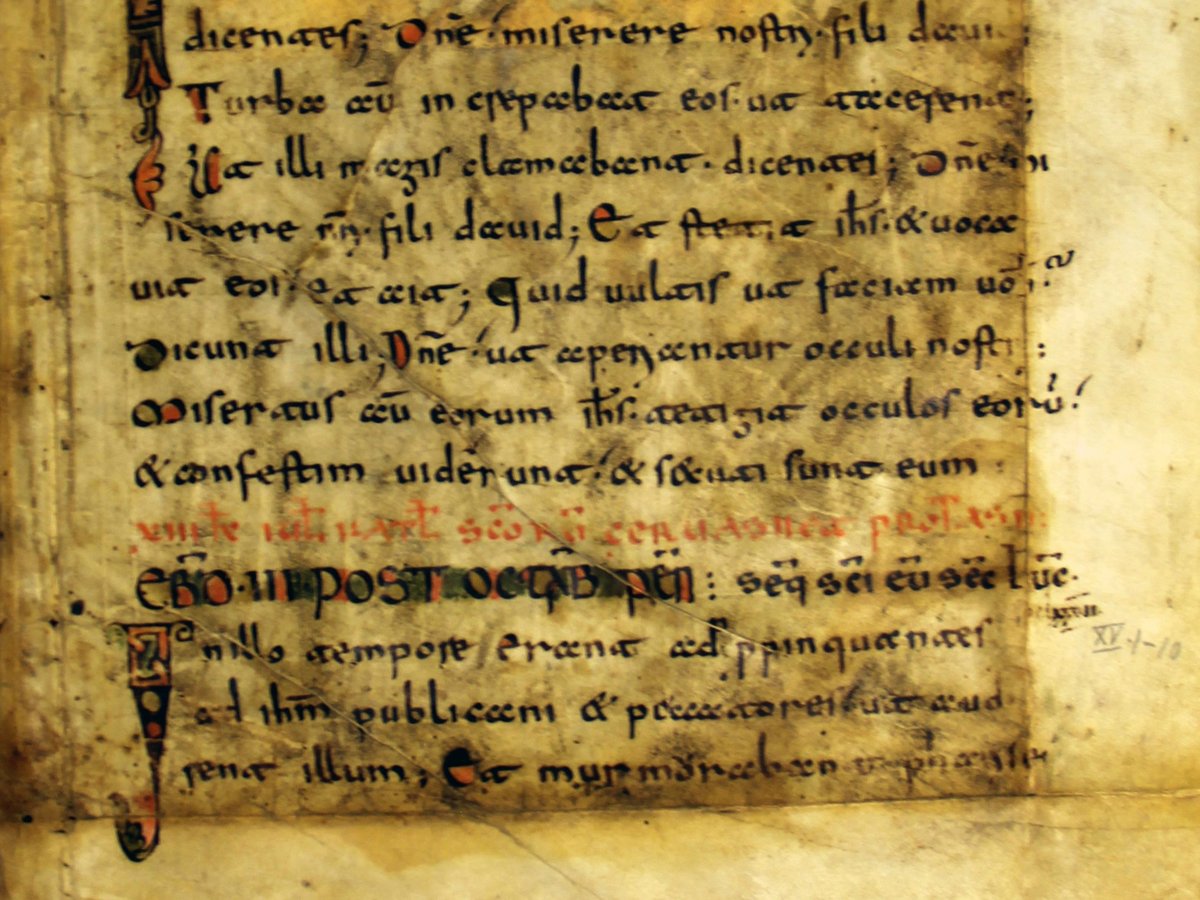 dicentes; Dn̄e miserere nostri fili dauid ;
Turba aū increpabat eos. ut tacerent;
At illi magis clamabant. dicentes; Dn̄e mi
serere nr̄i. fili dauid; Et stetit ih̄s. & uoca
uit eos. et ait; Quid uultis ut faciam uob̄is?
Dicunt illi; Dn̄e ut aperiantur occuli nostri :
Miseratus aū eorum ih̄s. tetigit occulos eorū.
& confestim uider̄unt. & secuti sunt eum :
scōrū geruasii et protasii
EBD̄O. III POST OCTAB̄ PEN̄ : seq̄ sc̄i eū sec̄ Luc̄.
In illo tempore erant adppinquantes
ad ihm̄ publicani & peccatores ut aud
irent illum; Et murmurabant pharisei
XV 1-10